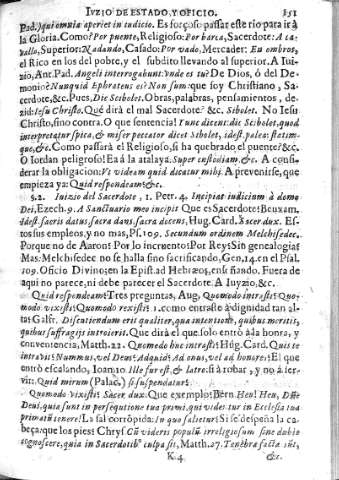 IVZIO DE ESTADO, Y OFICIO. 151
Pad.) qui omnia aperiet in iudicio. Es forçoso passar este rio para ir à
la Gloria. Como? Por puente, Religioso: Por barca, Sacerdote: A ca-
vallo, Superior: Nadando, Casado: Por vado, Mercader: En ombros,
el Rico en los del pobre, y el subdito llevando al superior. A Iui-
zio, Ant. Pad. Angeli interrogabunt: vnde es tu? De Dios, ó del De-
monio? Nunquid Ephrateus es? Non sum: que soy Christiano, Sa-
cerdote, &c. Pues, Dic Scibolet. Obras, palabras, pensamientos, de-
zid: Iesu Christo. Què dirà el mal Sacerdote? &c. Sibolet. No Iesu
Christo, sino contra. O que sentencia! Tunc dicent: dic Scibolet, quod
interpretatur spica, & miser peccator dicet Sibolet, idest, palea: statim-
que, &c. Como passarà el Religioso, si ha quebrado el puente? &c.
O Iordan peligroso! Ea à la atalaya. Super custodiam, &c. A consi-
derar la obligacion: Vt videam quid dicatur mihi. A prevenirse, que
empieza ya: Quid respondeam? &c.
§. 2. Iuizio del Sacerdote, 1. Petr. 4. Incipiat iudicium à domo
Dei, Ezech. 9. A Sanctuario meo incipit Que es Sacerdote? Beuxam.
idest, sacris datus, sacra dans, sacra docens, Hug. Card. Sacer dux. Es-
tos sus empleos, y no mas, Ps. 109. Secundum ordinem Melchisedec.
Porque no de Aaron? Por lo incruento: Por Rey: Sin genealogia:
Mas: Melchisedec no se halla sino sacrificando, Gen. 14. en el Psal.
109. Oficio Divino; en la Epist. ad Hebræos, enseñando. Fuera de
aqui no parece, ni debe parecer el Sacerdote. A Iuyzio, &c.
Quid respondeam? Tres preguntas, Aug. Quomodo intrasti? Quo-
modo vixisti? Quomodo rexisti? 1. como entraste à dignidad tan al-
ta? Galfr. Discutiendum erit qualiter, qua intentione, quibus meritis,
quibus suffragijs introierit. Què dirà el que solo entrò à la honra, y
conveniencia, Matth. 22. Quomodo huc intrasti? Hug. Card. Quis te
intravit: Nummus, vel Deus? Ad quid? Ad onus, vel ad honores? El que
entrò escalando, Ioan. 10. Ille fur est, & latro: si à robar, y no à ser-
vir: Quid mirum (Palac.) si suspendatur?
Quomodo vixisti? Sacer dux. Que exemplo? Bern. Heu! Heu, Dñe
Deus, quia sunt in persequtione tua primi, qui videntur in Ecclesia tua
primatū tenere! La sal corrõpida: In quo salietur? Si se despeña la ca-
beça: que los pies? Chrys. Cū videris populū irreligiosum sine dubio
cognoscere, quia in Sacerdotib' culpa sit, Matth. 27. Tenebræ factæ sūt,
K. 4. &c.